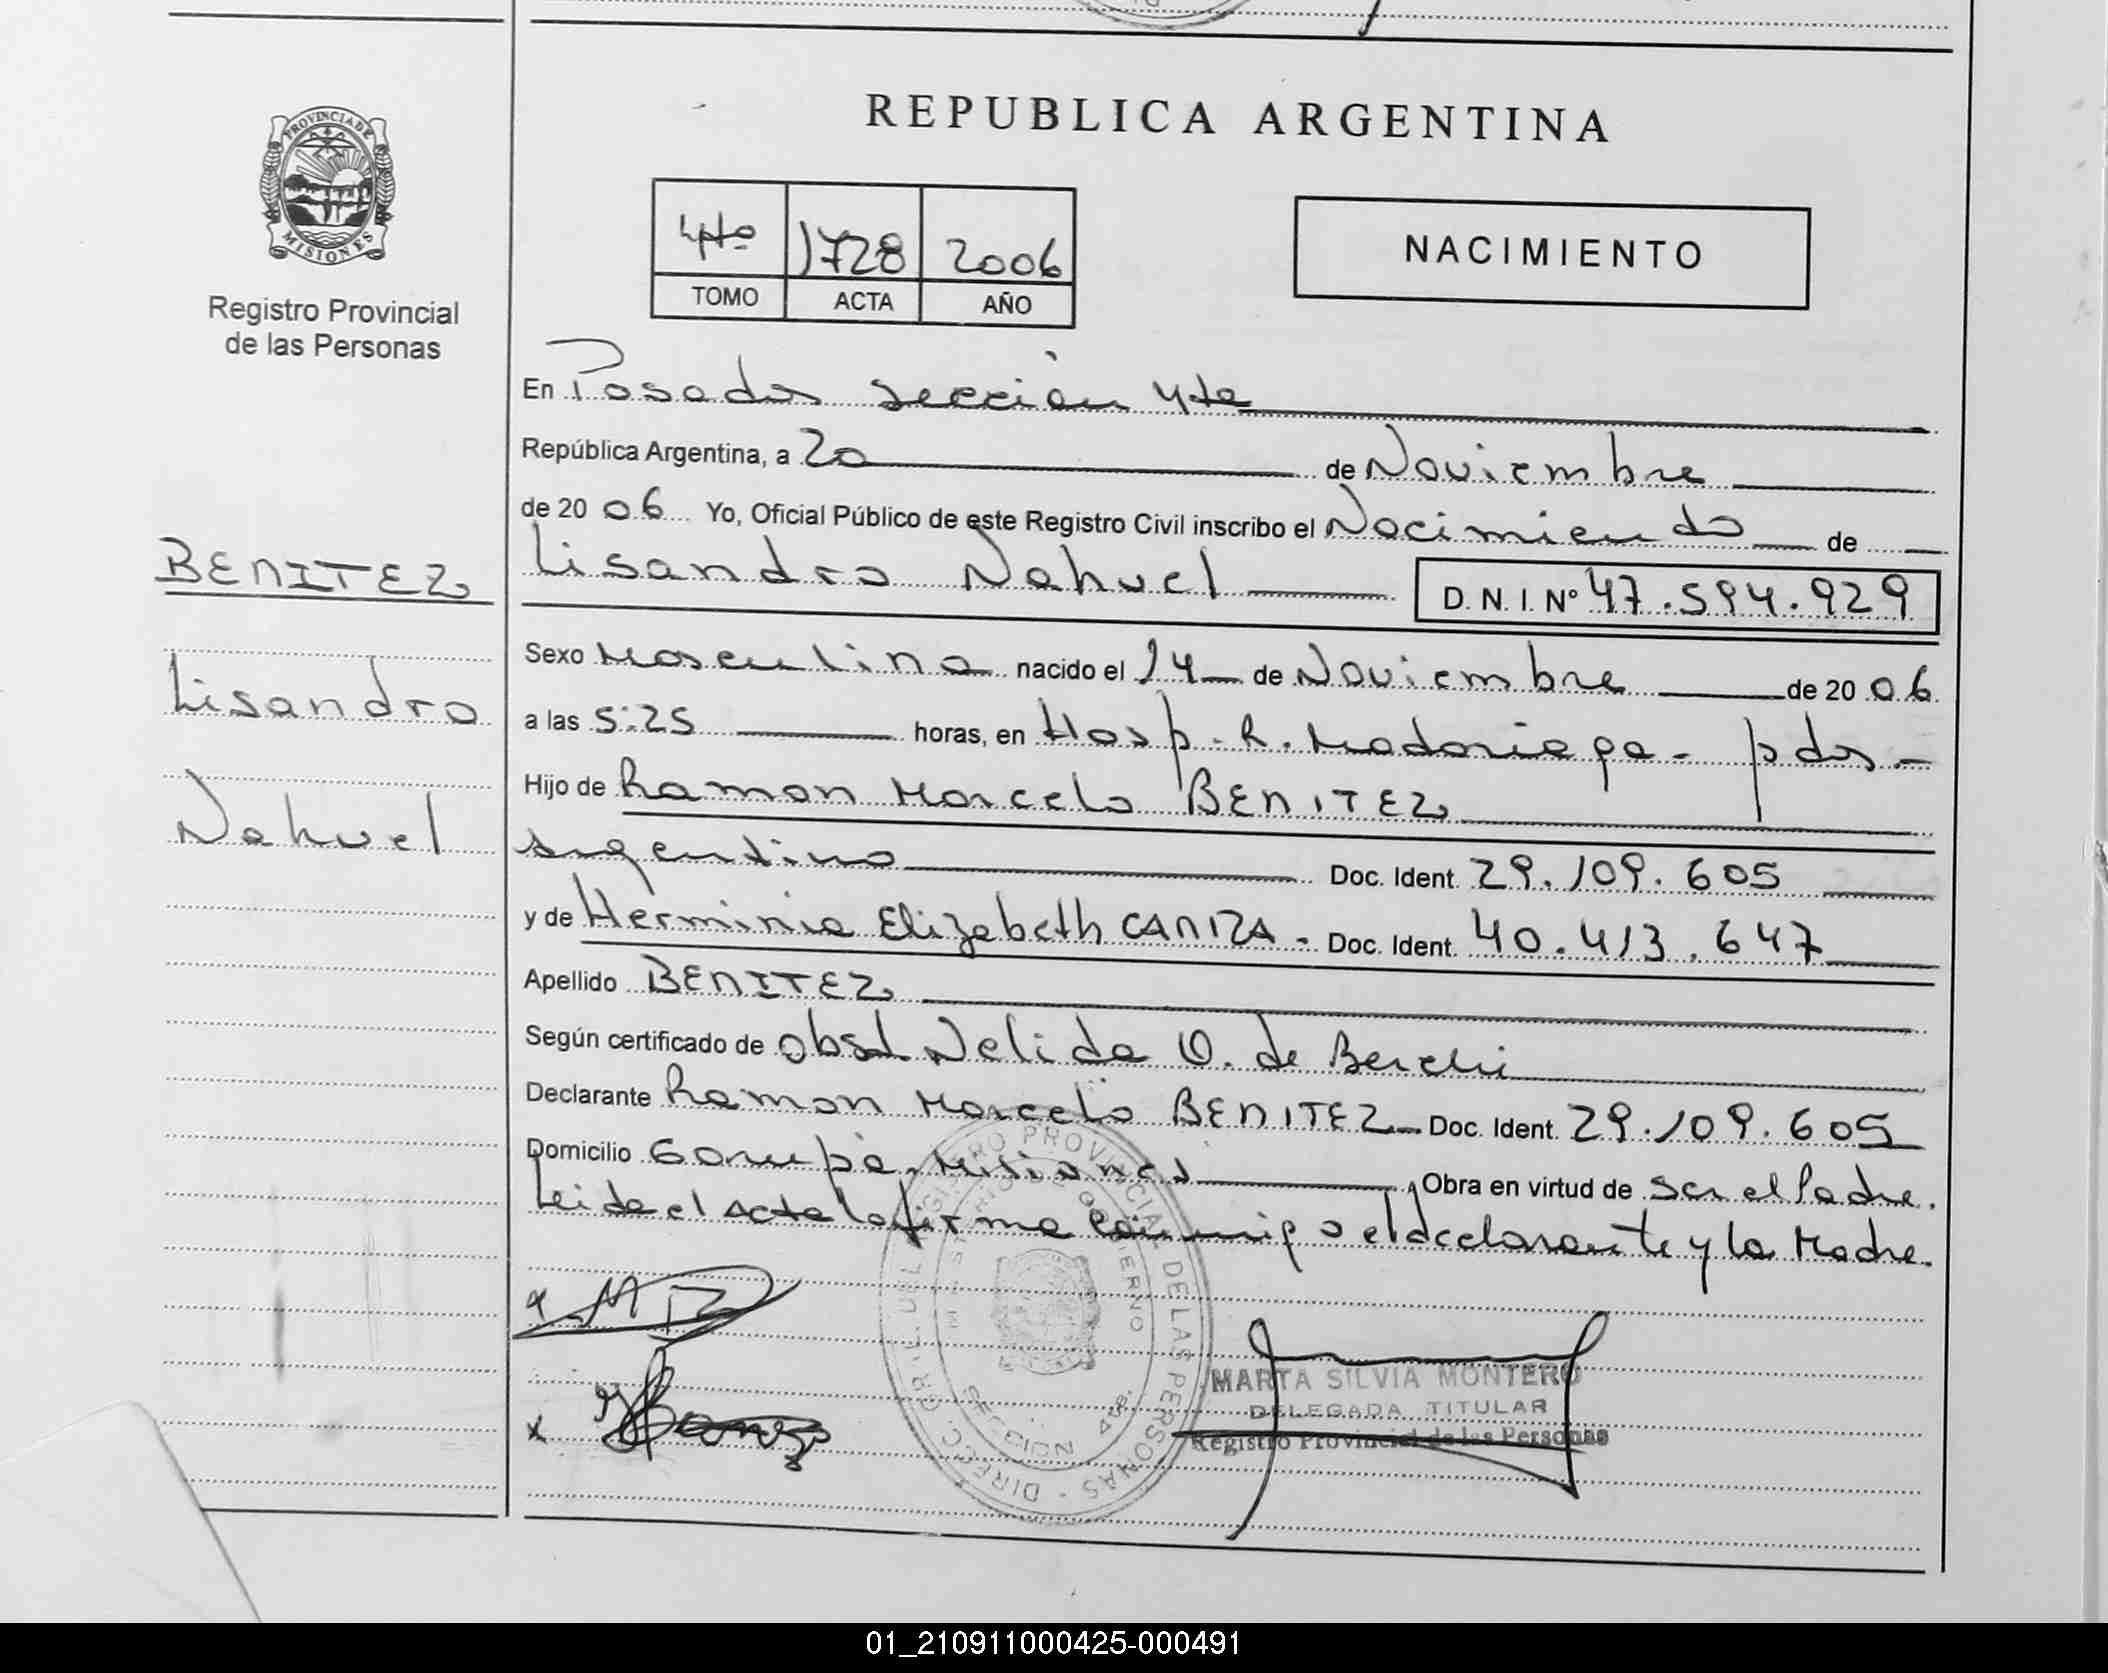 PROVINCIA DE
MISIONES
Registro Provincial
de las Personas
REPUBLICA ARGENTINA
4to 1728 2006
TOMO ACTA AÑO
NACIMIENTO
En Posadas sección 4ta
República Argentina, a 20 de Noviembre
de 20 06 Yo, Oficial Público de este Registro Civil inscribo el Nacimiento de
Lisandro Nahuel D. N. I. Nº 47.594.929
BENITEZ
Lisandro
Nahuel
Sexo Masculino nacido el 14 de Noviembre de 20 06
a las 5:25 horas, en Hosp. R. Madariaga - pdas -
Hijo de Ramon Marcelo BENITEZ
argentino Doc. Ident. 29.109.605
y de Herminia Elizabeth CANIZA - Doc. Ident. 40.413.647
Apellido BENITEZ
Según certificado de obst Nelida O. de
Declarante Ramon Marcelo BENITEZ Doc. Ident. 29.109.605
Domicilio Garupá. Misiones Obra en virtud de ser el Padre.
Leida el Acta la firma conmigo el declarante y la Madre.
DIREC. GRAL. DEL REGISTRO PROVINCIAL DE LAS PERSONAS
MINISTERIO DE GOBIERNO
SECCION 4ta.
MARTA SILVIA MONTERO
DELEGADA TITULAR
Registro Provincial de las Personas
01_210911000425-000491